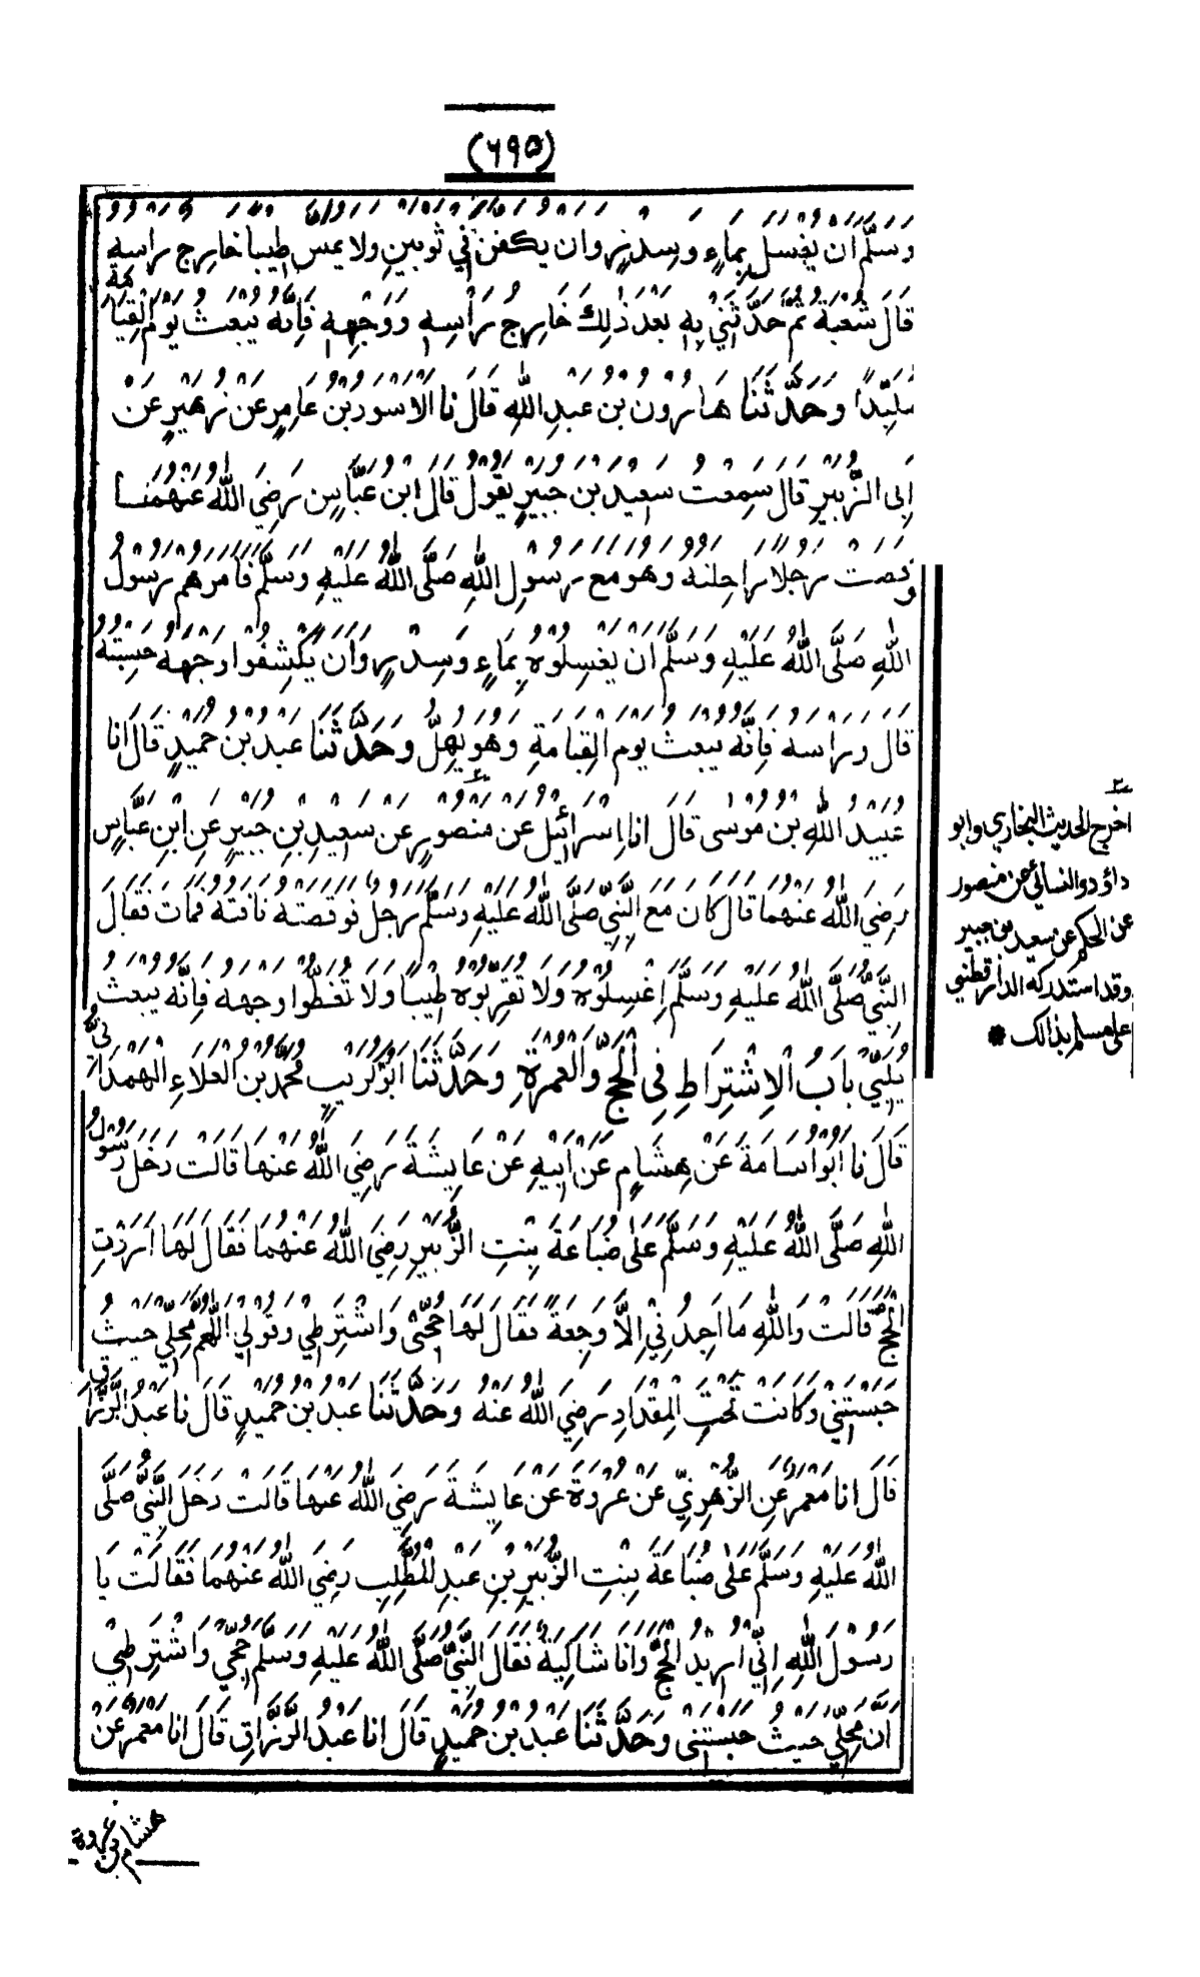 (۶۹۵)
وَسَلَّمَ اَن يُغسَلَ بِمَاءٍ وَسِدرٍ وَان يكفن في ثوبينِ ولا يمسّ طيبا خارِج رَاسِه
قَالَ شُعبَةُ ثُمَّ حَدَّثَنِي بِهِ بَعْدَ ذٰلِكَ خَارِجُ رَأسِهِ وَوَجْهِهِ فَاِنَّهُ يُبعثُ يَومَ القِيَامَةِ
مُلَبِّدًا وَحَدَّثَنَا هَارون بن عبدِ اللّٰهِ قَالَ نا الْاَسْوَدُ بنُ عَامِرٍ عَن زُهَيرٍ عَن
اَبِى الزُّبَيرِ قَالَ سَمِعتُ سَعِيدَ بنَ جُبَيرٍ يَقولُ قَالَ ابنُ عَبَّاسٍ رَضِيَ اللّٰهُ عَنْهُمَا
وقصت رجلا راحلته وهو مع رسولِ اللّٰهِ صَلَّى اللّٰهُ عَلَيْهِ وَسَلَّمَ فَاَمَرَهُم رَسُولُ
اللّٰهِ صَلَّى اللّٰهُ عَلَيْهِ وَسَلَّمَ اَن يَغسِلُوهُ بِمَاءٍ وَسِدْرٍ وَاَن يَّكْشِفُوا وَجهَهُ حَسِبتُهُ
قَالَ ورَاسه فَاِنَّهُ يُبعثُ يَوم القِيَامَةِ وَهُوَ يُهِلُّ وَحَدَّثَنَا عَبدُ بن حُمَيدٍ قَالَ انا
عُبَيدُ اللّٰهِ بن مُوسٰى قَالَ انا اِسرَائيل عَن مَنصورٍ عَن سَعِيدِ بنِ جُبَيرٍ عَنِ ابنِ عَبَّاسٍ
رَضِيَ اللّٰهُ عَنهُما قَالَ كَانَ مَعَ النَّبِيِّ صَلَّى اللّٰهُ عَلَيهِ وَسَلَّمَ رَجُلٌ فوقصته ناقته فَمَاتَ فَقَالَ
النَّبِيُّ صَلَّى اللّٰهُ عَلَيهِ وَسَلَّمَ اِغسِلُوهُ ولا تُقرِبُوهُ طِيبًا ولا تُغَطُّوا وَجهَه فَاِنَّه يبعث
يُلَبِّي بَابُ الْاِشْتِرَاطِ فِي الْحَجِّ وَالعُمرَةِ وَحَدَّثَنَا اَبُو كُرَيبٍ مُحَمَّد بن العَلَاءِ الهَمْدَانِيُّ
قَالَ نا اَبُو اُسَامَةَ عَنْ هِشَامٍ عَن اَبِيهِ عَنْ عَايِشَةَ رَضِيَ اللّٰهُ عَنْهَا قَالَت دَخَلَ رَسُولُ
اللّٰهِ صَلَّى اللّٰهُ عَلَيْهِ وَسَلَّمَ عَلٰى ضُبَاعَةَ بِنتِ الزُّبَيرِ رَضِيَ اللّٰهُ عَنْهُمَا فَقَالَ لَهَا اَرَدْتِ
الْحَجَّ قَالَتْ وَاللّٰهِ مَا اَجِدُنِيْ اِلَّا وَجِعَةً فَقَالَ لَهَا حُجِّى وَاشْتَرِطِي وَقُوْلِي اَللّٰهُمَّ مَحِلِّي حَيثُ
حَبَسْتَنِي وَكَانَت تَحْتَ المِقْدَادِ رَضِيَ اللّٰهُ عَنْهُ وَحَدَّثَنَا عَبدُ بن حُمَيدٍ قَالَ نا عَبْدُ الرَّزَّاقِ
قَالَ انا مَعْمَرٌ عَنِ الزُّهرِيِّ عَن عُروَةَ عَن عَايِشَةَ رَضِيَ اللّٰهُ عَنهَا قَالَتْ دَخَلَ النَّبِيُّ صَلَّى
اللّٰهُ عَلَيْهِ وَسَلَّمَ عَلٰى ضُبَاعَةَ بِنْتِ الزُّبَيْرِ بنِ عَبدِ المُطَّلِبِ رَضِيَ اللّٰهُ عَنهُمَا فَقَالَتْ يَا
رَسُوْلَ اللّٰهِ اِنِّي اُرِيْدُ الْحَجَّ وَاَنَا شَاكِيَةٌ فَقَالَ النَّبِيُّ صَلَّى اللّٰهُ عَلَيْهِ وَسَلَّمَ حُجِّي وَاشْتَرِطِيْ
اَنَّ مَحِلِّي حَيثُ حَبَستَنِي وَحَدَّثَنَا عَبدُ بن حُمَيدٍ قَالَ انا عَبْدُ الرَّزَّاقِ قَالَ انا مَعمَرٌ عَنْ
هشام بن عروة
اخرج الحديث البخاري وابو
داؤد والنسائي عن منصور
عن الحكم عن سعيد بن جبير
وقد استدركه الدارقطني
على مسلم بذالك *